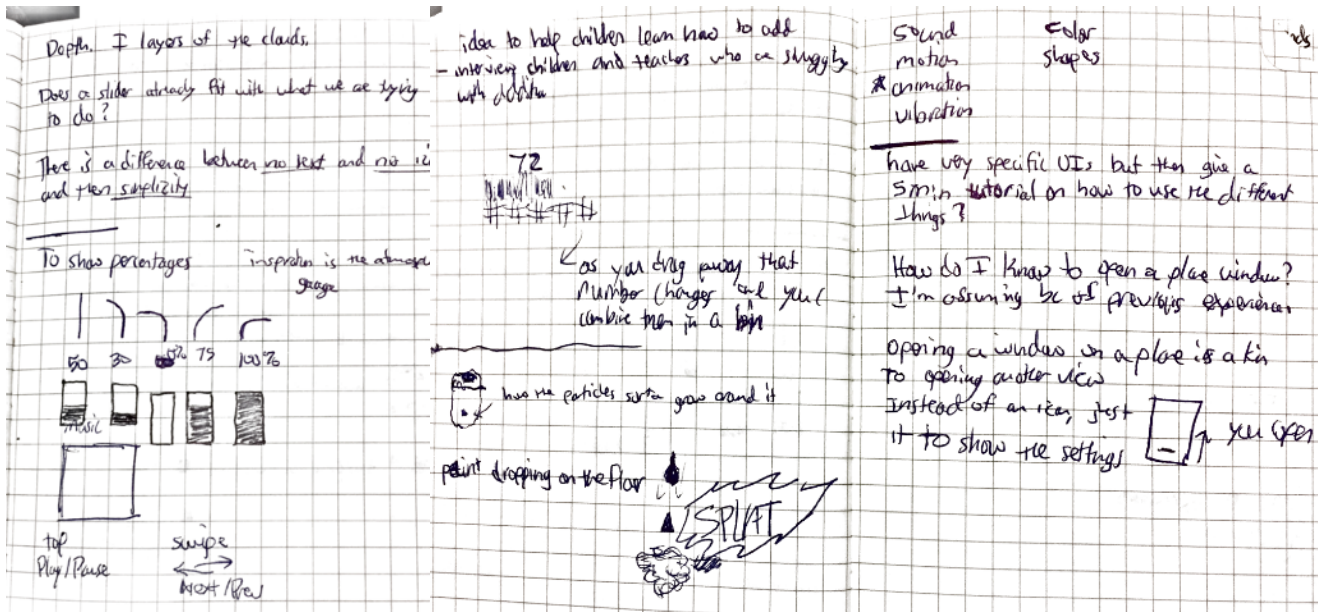 Depth. I layers of the clouds.
Does a slider already fit with what we are trying
to do?
There is a difference between no text and no
and then simplicity
To show percentages
inspiration is the
guage
50 30 75 100%
music
tap
Play/Pause
swipe
Next/Prev
idea to help children learn how to add
- interview children and teachers who are struggling
with addition
72
as you drag away that
number changes and you
combine them in a
how the particles sorta grow around it
paint dropping on the floor
SPLAT
sound
motion
* animation
vibration
color
shapes
have very specific UIs but then give a
5min tutorial on how to use the different
things?
How do I know to open a plane window?
I'm assuming bc of previous experiences
opening a window on a plane is a kin
to opening another view
Instead of an icon, just
it to show the settings
you open